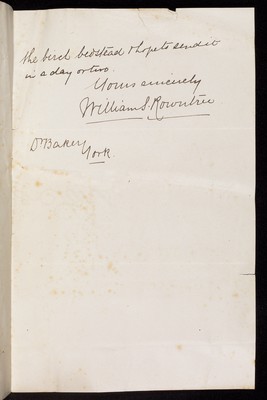 the birch bedstead & hope to send it
in a day or two.
Yours sincerely
William S. Rowntree
Dr Baker
York.